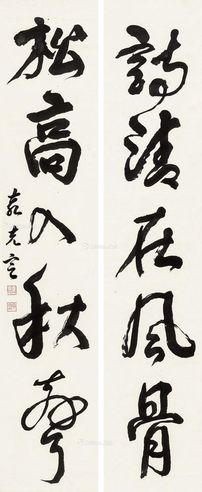 詩清在風骨
松高入秋聲
袁克定